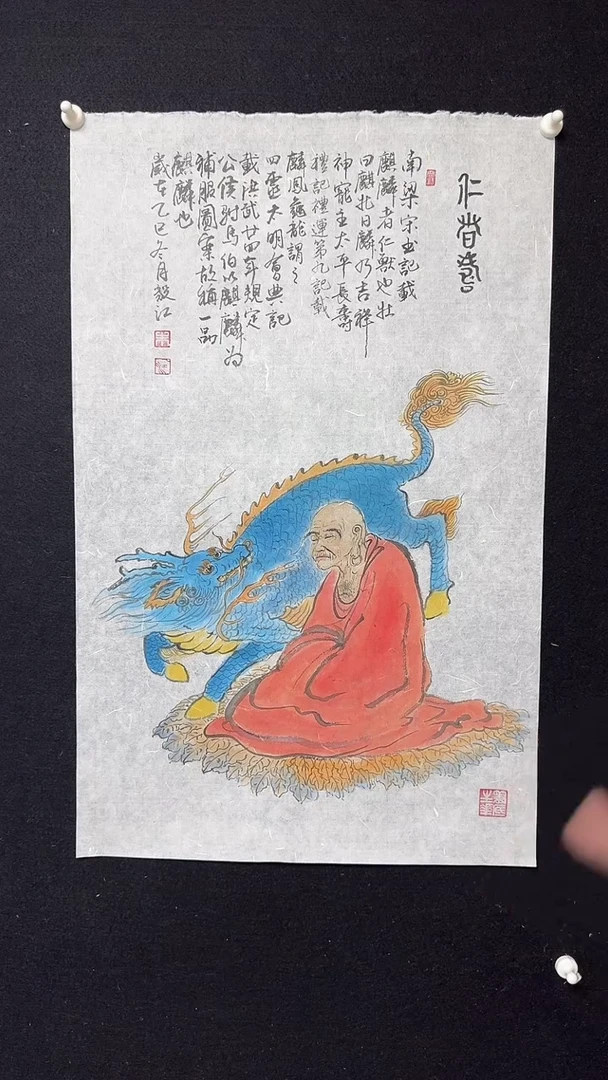 仁者壽
南梁宋书記載
麒麟者仁獸也牡
曰麒牝曰麟乃吉祥
神寵主太平長壽
禮記禮運第九記載
麟鳳龜龍謂之
四靈大明會典記
載洪武廿四年規定
公侯駙馬伯以麒麟為
補服圖案故稱一品
麒麟也
歲在乙巳冬月毅江